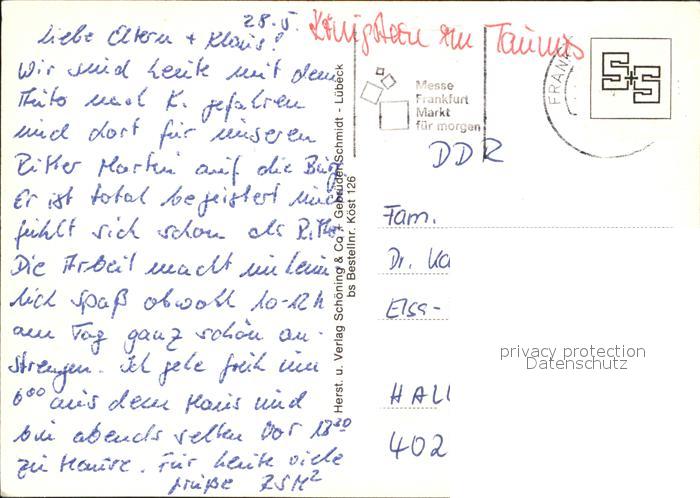 28.5.
Königstein im Taunus
Liebe Eltern + Klaus!
Wir sind heute mit dem
Auto nach K. gefahren
und dort für unseren
Ritter Martin auf die Burg
Er ist total begeistert und
fühlt sich schon als Ritter
Die Arbeit macht
lich spaß obwohl 10-12h
am Tag ganz schön an-
strengen. Ich gehe früh um
6⁰⁰ aus dem Haus und
bin abends selten vor 18³⁰
zu Hause. Für heute viele
Grüße RSM²
Herst. u. Verlag Schöning & Co + Gebrüder Schmidt - Lübeck
bs Bestellnr. Köst 126
Messe
Frankfurt
Markt
für morgen
FRANKF
S+S
DDR
Fam.
Dr. Ka
Elsa-
HALL
402
privacy protection
Datenschutz